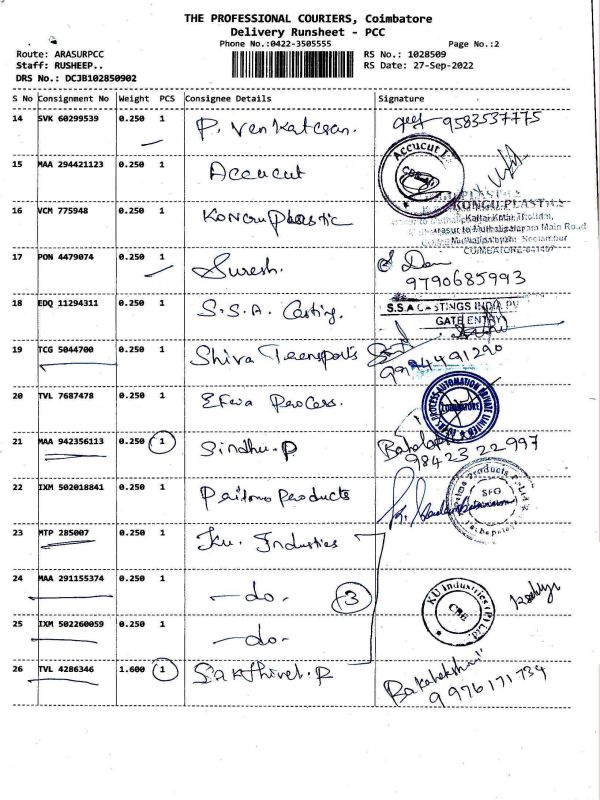 THE PROFESSIONAL COURIERS, Coimbatore
Delivery Runsheet - PCC
Phone No.:0422-3505555 Page No.:2
Route: ARASURPCC RS No.: 1028509
Staff: RUSHEEP.. RS Date: 27-Sep-2022
DRS No.: DCJB102850902
S No Consignment No Weight PCS Consignee Details Signature
14 SVK 60299539 0.250 1 P. Venkatesan. 9583537775
15 MAA 294421123 0.250 1 Accucut Accucut
16 VCM 775948 0.250 1 Kongu Plastic KONGU PLASTIC
Main Road
Neelambur
COIMBATORE-641407
17 PON 4479074 0.250 1 Suresh.
9790685993
18 EDQ 11294311 0.250 1 S.S.A. Casting. S.S.A CASTINGS INDIA PV
GATE ENTRY
19 TCG 5044700 0.250 1 Shiva Transports 9994491290
20 TVL 7687478 0.250 1 Efva Process. PROCESS AUTOMATION PRIVATE LIMITED COIMBATORE
21 MAA 942356113 0.250 1 Sindhu.P
98423 22997
22 IXM 502018841 0.250 1 Paitoma Products Products SFG
23 MTP 285007 0.250 1 Ku. Industies
24 MAA 291155374 0.250 1 -do. 3 KU Industries (P) Ltd. CBE
25 IXM 502260059 0.250 1 -do-
26 TVL 4286346 1.600 1 Sakthivel.R
9976171734